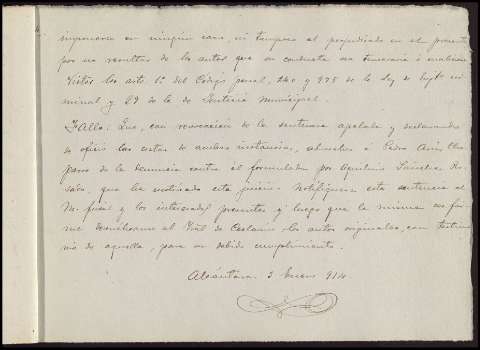 imponerse en ningun caso, ni tampoco al perjudicado en el presente
por no resultar de los autos que su conducta sea temeraria ó maliciosa
Vistos los arts. 1º del Código penal, 240 y 975 de la Ley de Enjto cri
minal y 29 de la de Justicia Municipal.
Fallo: Que, con revocacion de la sentencia apelada y declarando
de oficio las costas de ambas instancias, absuelvo á Pedro
de la denuncia contra él formulada por Aquilino Sánchez
que ha motivado este juicio. Notifíquese esta sentencia al
M. fiscal y los interesados presentes y luego que la misma sea fir
me devuélvanse al Tral de los autos originales, con testimo
nio de aquella, para su debido cumplimiento.
Alcántara 3 Enero 914.